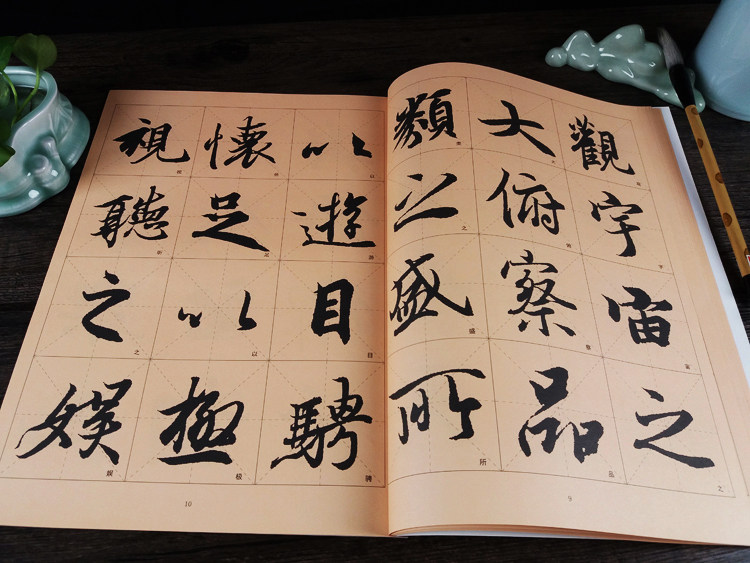 觀宇宙之
大俯察品
類之盛所
9
以遊目騁
懷足以極
視聽之娛
10